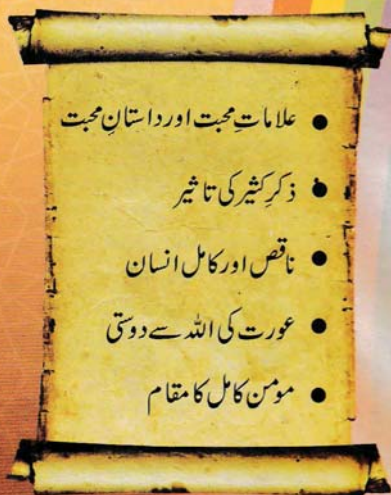 ● علاماتِ محبت اور داستانِ محبت
● ذکرِ کثیر کی تاثیر
● ناقص اور کامل انسان
● عورت کی اللہ سے دوستی
● مومن کامل کا مقام